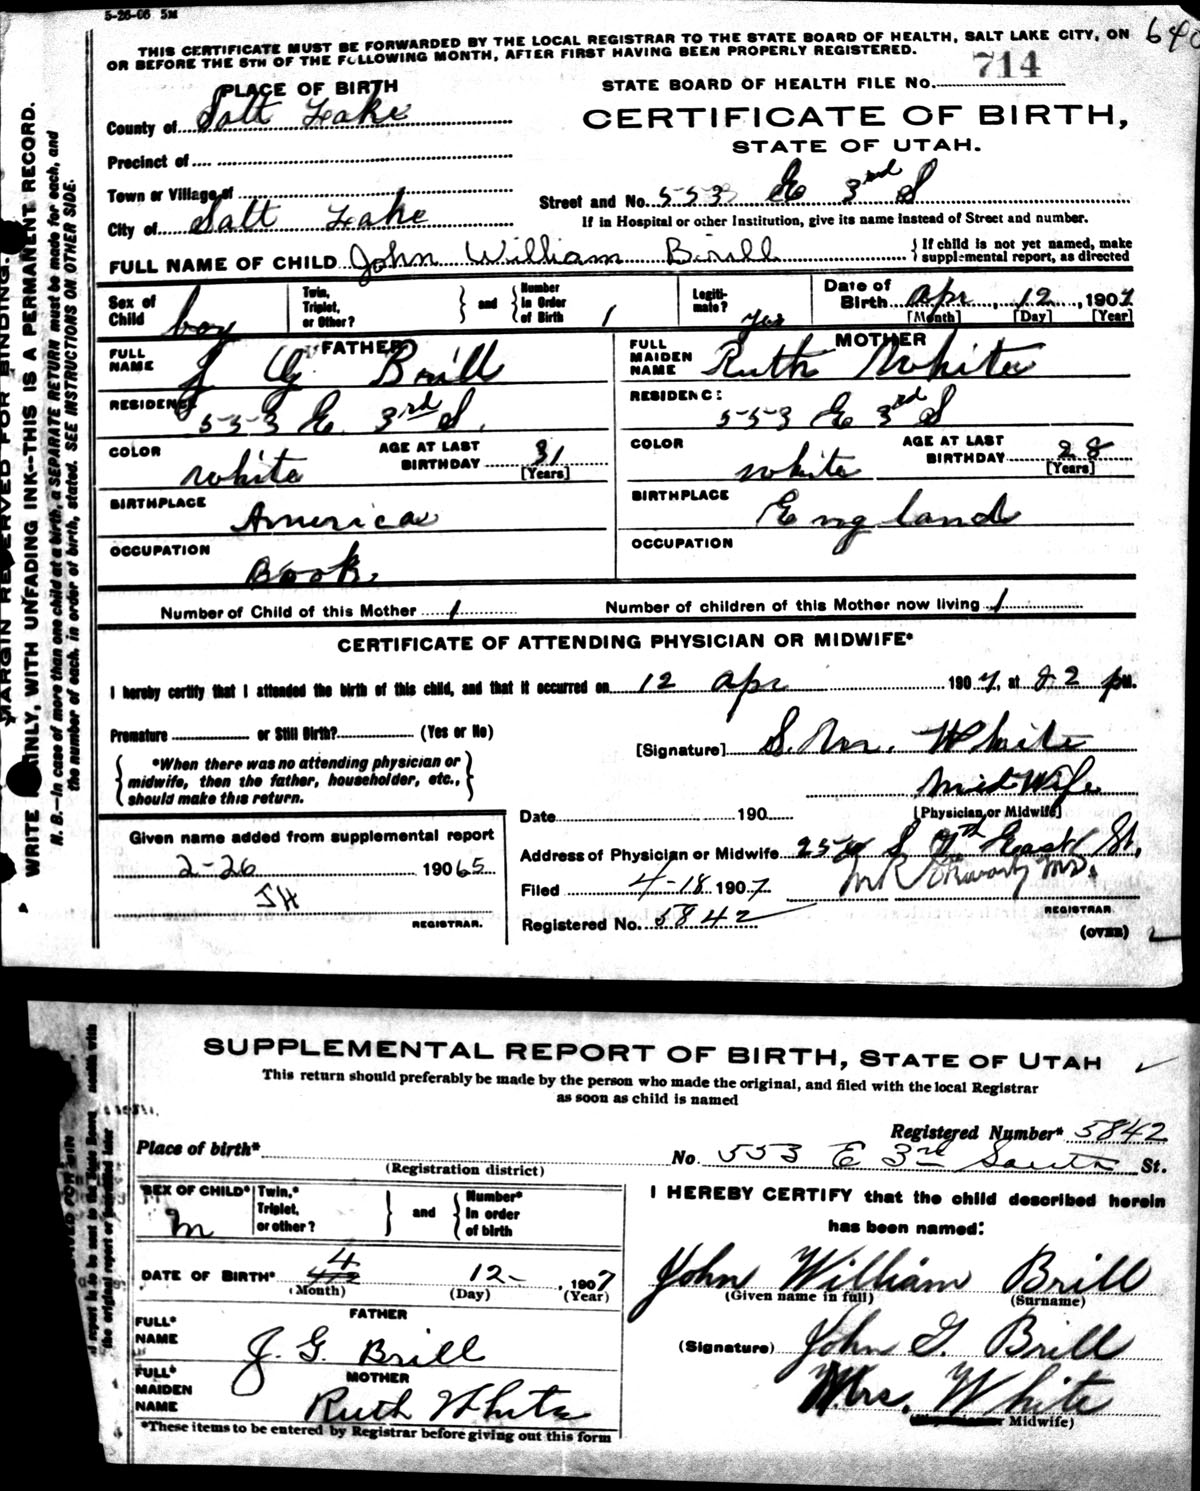 5-26-06 5M
THIS CERTIFICATE MUST BE FORWARDED BY THE LOCAL REGISTRAR TO THE STATE BOARD OF HEALTH, SALT LAKE CITY, ON
OR BEFORE THE 5TH OF THE FOLLOWING MONTH, AFTER FIRST HAVING BEEN PROPERLY REGISTERED.
640
PLACE OF BIRTH
STATE BOARD OF HEALTH FILE NO. 714
County of Salt Lake
CERTIFICATE OF BIRTH,
STATE OF UTAH.
Precinct of
Town or Village of
Street and No. 553 E 3rd S
City of Salt Lake
If in Hospital or other Institution, give its name instead of Street and number.
FULL NAME OF CHILD John William Brill
If child is not yet named, make
supplemental report, as directed
Sex of Child boy
Twin, Triplet, or Other?
and
Number in Order of Birth 1
Legitimate? yes
Date of Birth Apr, 12, 1907
[Month] [Day] [Year]
FATHER
FULL NAME J G Brill
RESIDENCE 553 E. 3rd S.
COLOR white
AGE AT LAST BIRTHDAY 31
[Years]
BIRTHPLACE America
OCCUPATION Book.
MOTHER
FULL MAIDEN NAME Ruth White
RESIDENCE 553 E 3rd S
COLOR white
AGE AT LAST BIRTHDAY 28
[Years]
BIRTHPLACE England
OCCUPATION
Number of Child of this Mother 1
Number of children of this Mother now living 1
CERTIFICATE OF ATTENDING PHYSICIAN OR MIDWIFE*
I hereby certify that I attended the birth of this child, and that it occurred on 12 Apr 1907, at 2 p M.
Premature or Still Birth? (Yes or No)
[Signature] S. M. White
*When there was no attending physician or
midwife, then the father, householder, etc.,
should make this return.
MidWife
[Physician or Midwife]
Date 190
Given name added from supplemental report
2-26 1965
JH
REGISTRAR.
Address of Physician or Midwife S 7th East St.
Filed 4-18 1907
M.D.
REGISTRAR
Registered No. 5842
(OVER)
MARGIN RESERVED FOR BINDING.
WRITE PLAINLY, WITH UNFADING INK--THIS IS A PERMANENT RECORD.
N. B.--In case of more than one child at a birth, a SEPARATE RETURN must be made for each, and
the number of each, in order of birth, stated. SEE INSTRUCTIONS ON OTHER SIDE.
SUPPLEMENTAL REPORT OF BIRTH, STATE OF UTAH
This return should preferably be made by the person who made the original, and filed with the local Registrar
as soon as child is named
Registered Number* 5842
Place of birth*
(Registration district)
No. 553 E 3rd South St.
SEX OF CHILD* M
Twin,* Triplet, or other?
and
Number* In order of birth
DATE OF BIRTH* 4 12- , 1907
(Month) (Day) (Year)
FATHER
FULL* NAME J. G. Brill
MOTHER
FULL* MAIDEN NAME Ruth White
*These items to be entered by Registrar before giving out this form
I HEREBY CERTIFY that the child described herein
has been named:
John William Brill
(Given name in full) (Surname)
(Signature) John G. Brill
Mrs. White
Midwife)